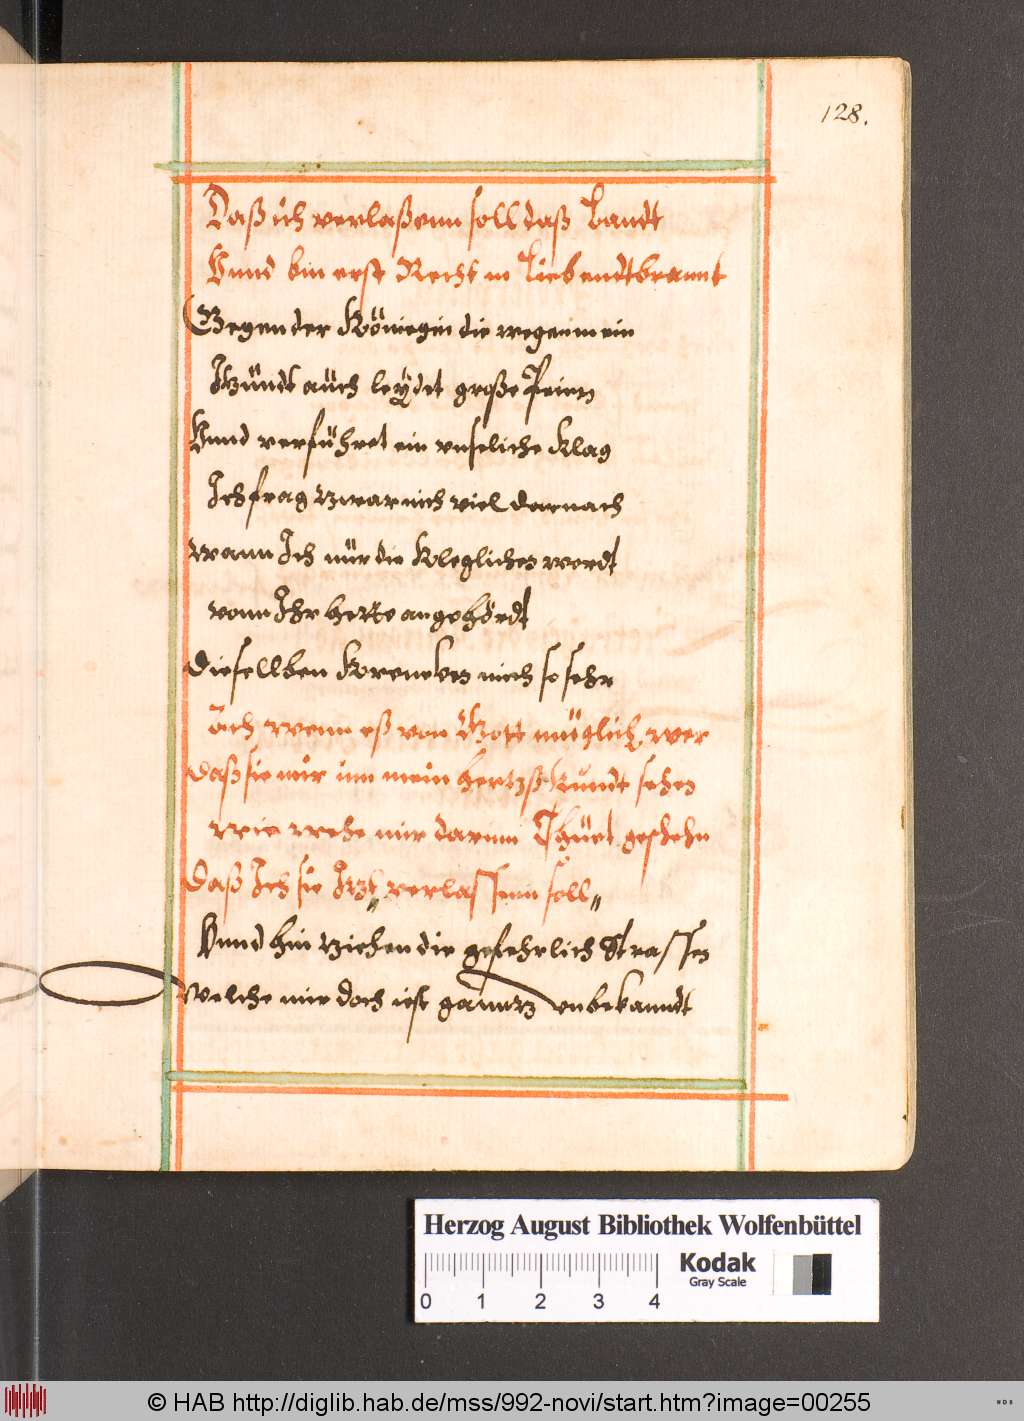 128.
Daß ich verlaßenn soll daß Landt
Vnnd bin erst Recht in Lieb endtbrannt
Gegen der Königin die wegen mein
Itzundt auch leydet große Pein
Vnnd verführet ein vnseliche Klag
Ich frag zwar nich viel darnach
Wann Ich nur die Kleglichen wordt
vonn Ihr hette angehördt
Diesellben Krencken mich so sehr
Ach wenn eß von Gott müglich wer
Daß sie mir inn mein hertz Kundt sehen
Wie wehe mir darinn Thuet geschehn
Daß Ich sie Itzt verlassenn soll
Vnnd hin ziehen die gefehrlich Strassen
Welche mir doch ist ganntz vnbekanndt
Herzog August Bibliothek Wolfenbüttel
Kodak
Gray Scale
0 1 2 3 4
© HAB http://diglib.hab.de/mss/992-novi/start.htm?image=00255